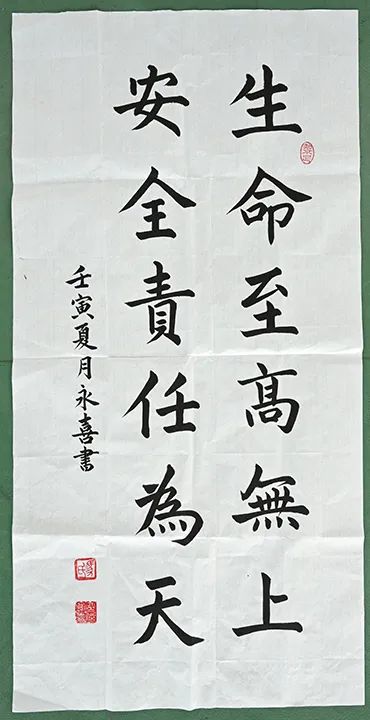 生命至高無上
安全責任為天
壬寅夏月永喜書